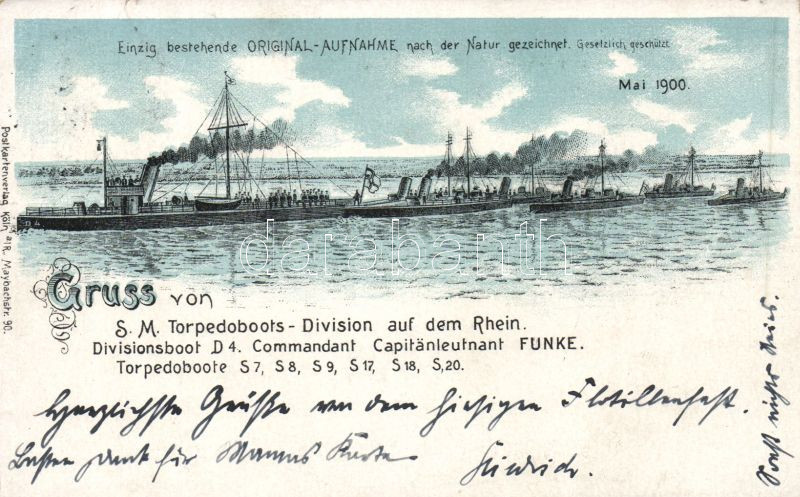 Einzig bestehende ORIGINAL-AUFNAHME nach der Natur gezeichnet. Gesetzlich geschützt
Mai 1900.
D 4
databanth
Gruss von
S. M. Torpedoboots-Division auf dem Rhein.
Divisionsboot D 4. Commandant Capitänleutnant FUNKE.
Torpedoboote S 7, S 8, S 9, S 17, S 18, S, 20.
Herzlichste Grüße von dem hiesigen Flotillenfest.
Besten Dank für Mamas Karte.
Sonst nichts Neues.
Postkartenverlag Köln a/R. Maybachstr. 90.